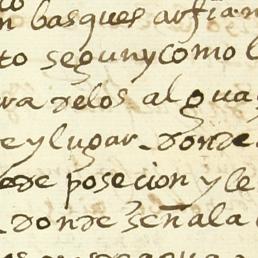 basques arfian
to segun y como l
ra de los algua
e y lugar donde
de posecion y le
donde señala